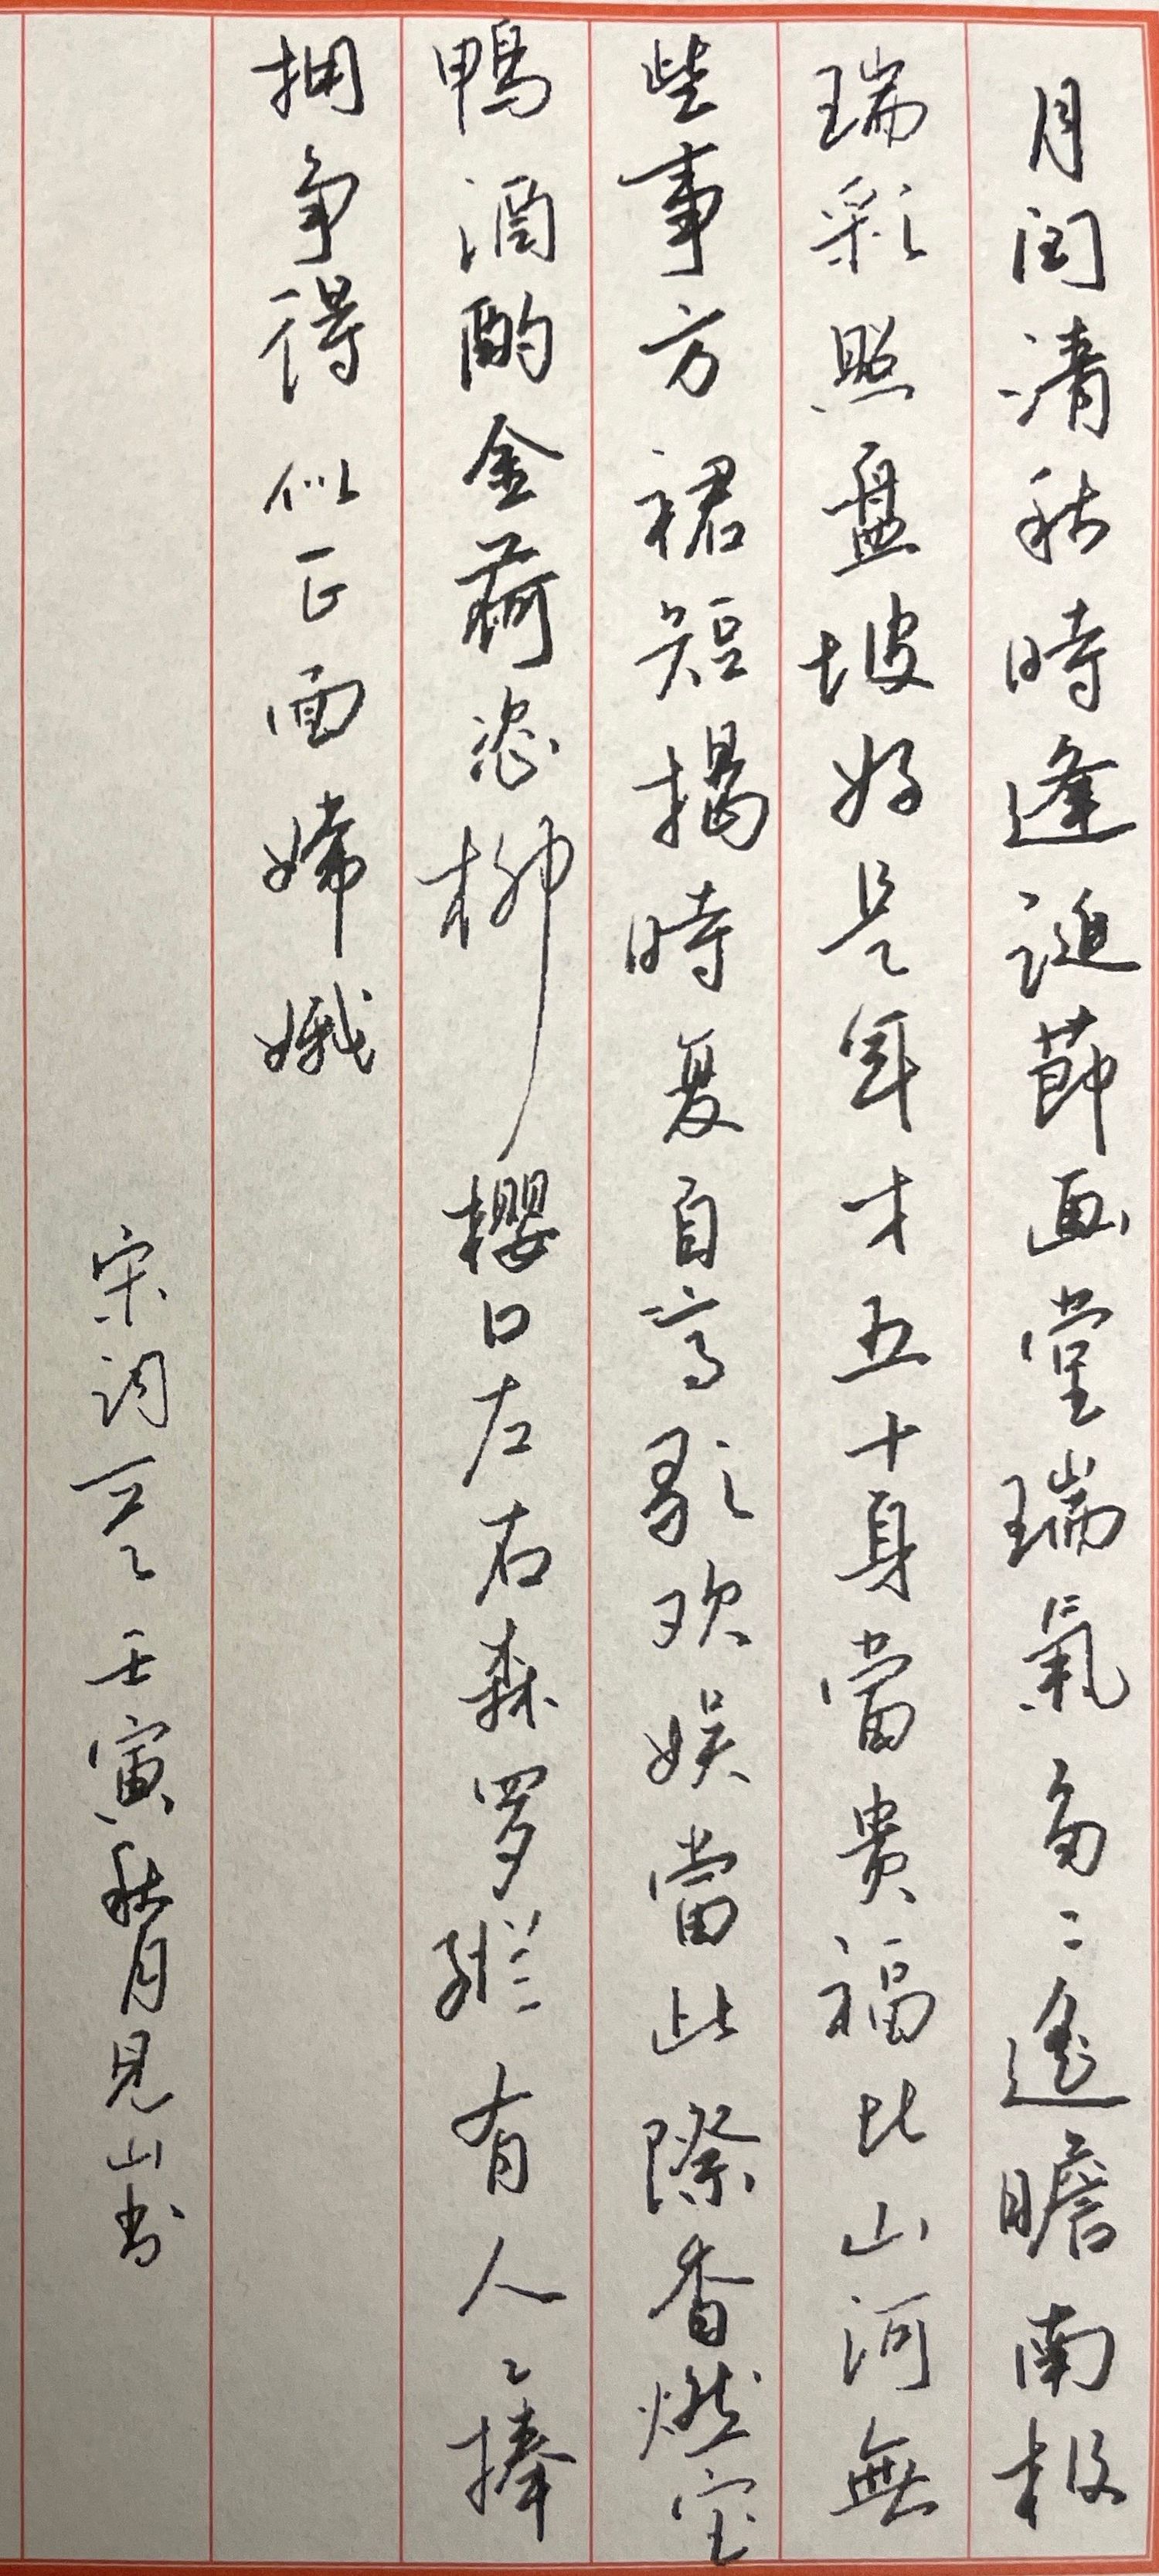 月闰清秋時逢誕節画堂瑞氣多〻遙瞻南极
瑞彩照盘坡好是年才五十身當贵福比山河無
些事方裙短揭時复自高歌欢娱當此際香燃宝
鸭酒酌金荷恣柳櫻口左右森罗纵有人〻捧
拥争得似正面嫦娥
宋词一首壬寅秋月見山书